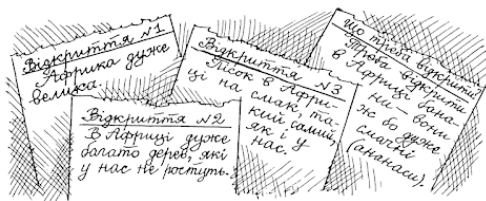 Відкриття №1
Африка дуже
велика.
Відкриття №2
В Африці дуже
багато дерев, які
у нас не ростуть.
Відкриття №3
Пісок в Афри-
ці на смак, та-
кий самий,
як і у
нас.
Що треба відкрити:
Треба відкрити
в Африці бана-
ни, вони
ж бо дуже
смачні
(ананаси).